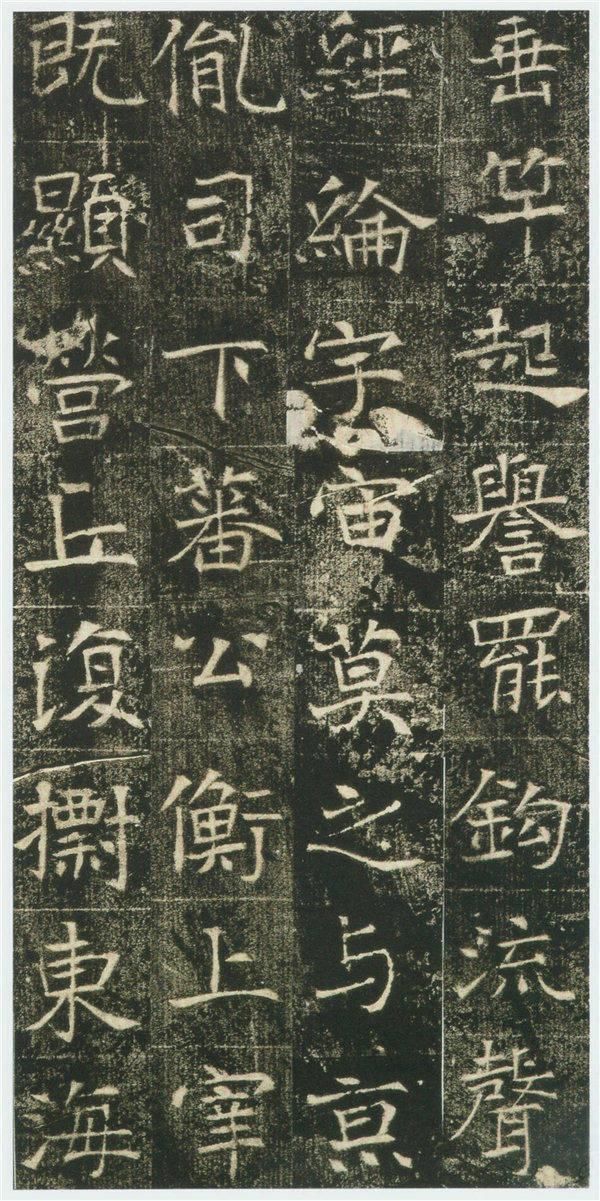 垂竿起譽罷鈎流聲
經綸宇宙莫之与京
胤司下蕃公衡上宰
既顯營丘復摽東海